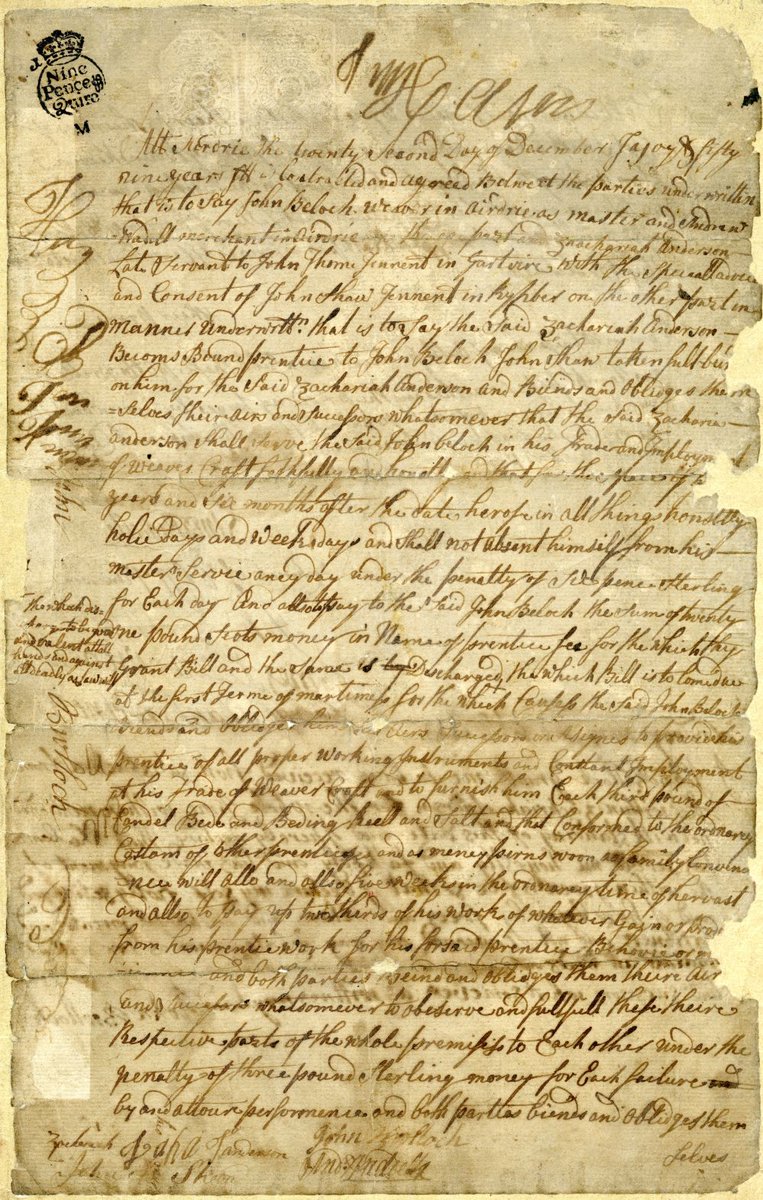 Nine
Pence
Quire
M
Att Airdrie the twenty Second Day of December Jajvy & fifty
nine years Itt is Contracted and agreed Betwext the parties underwritten
that is to Say John Beloch weaver in airdrie as master and Andrew
merchant in airdrie on the one part and Zachariah Anderson
Late Servant to John Thom Tennent in Gartvire with the Speciall advice
and Consent of John Shaw Tennent in Rysber on the other part in
manner Underwrittn that is to Say the Said Zachariah anderson
Becoms Bound prentice to John Beloch John Shaw taken full bur
on him for the Said Zachariah anderson and Biends and oblidges them
=Selves their airs and Successors whatsomever that the Said Zacharia
anderson Shall Serve the Said John Beloch in his Trade and Employment
of Weaver Craft faithfully and honestly and that for the space of
years and Six months after the date herof in all things honestly
holie Days and Week days and Shall not absent himself from his
master Servie aney day under the penalty of Six pence Sterling
for Each day And allso to pay to the Said John Beloch the Sum of twenty
one pound Scots money in Name of prentice fee for the which they
Grant Bill and the Same is Discharged the which Bill is to bee due
at the first Terme of martimess for the which Causes the Said John Beloch
Biends and oblidges his airs Successors to provide his
prentice of all proper Working Instruments and Constant Employment
at his Trade of Weaver Craft and to furnish him Each third pound of
Candel Bede and Beding heell and Salt and that Conforhed to the ordnarey
Costam of other prenteice and as meney pirns woon as family Convine
=nce will allo and allso five weeks in the ordenarey time of hervast
and allso to pay up two thirds of his work of whatever Gain or prof
from his prentice work for his forsaid prentice Behove or
and both parties Beind and oblidges them theire air
and Sucessors whatsomever to observe and fullfull these theire
Respective parts of the whole premisses to Each other under the
penalty of three pound Sterling money for Each failure
by and attour performence and both parties biends and oblidges them
Selves
Zacharіah Anderson
John Shaw
John Burloch
John Burloch